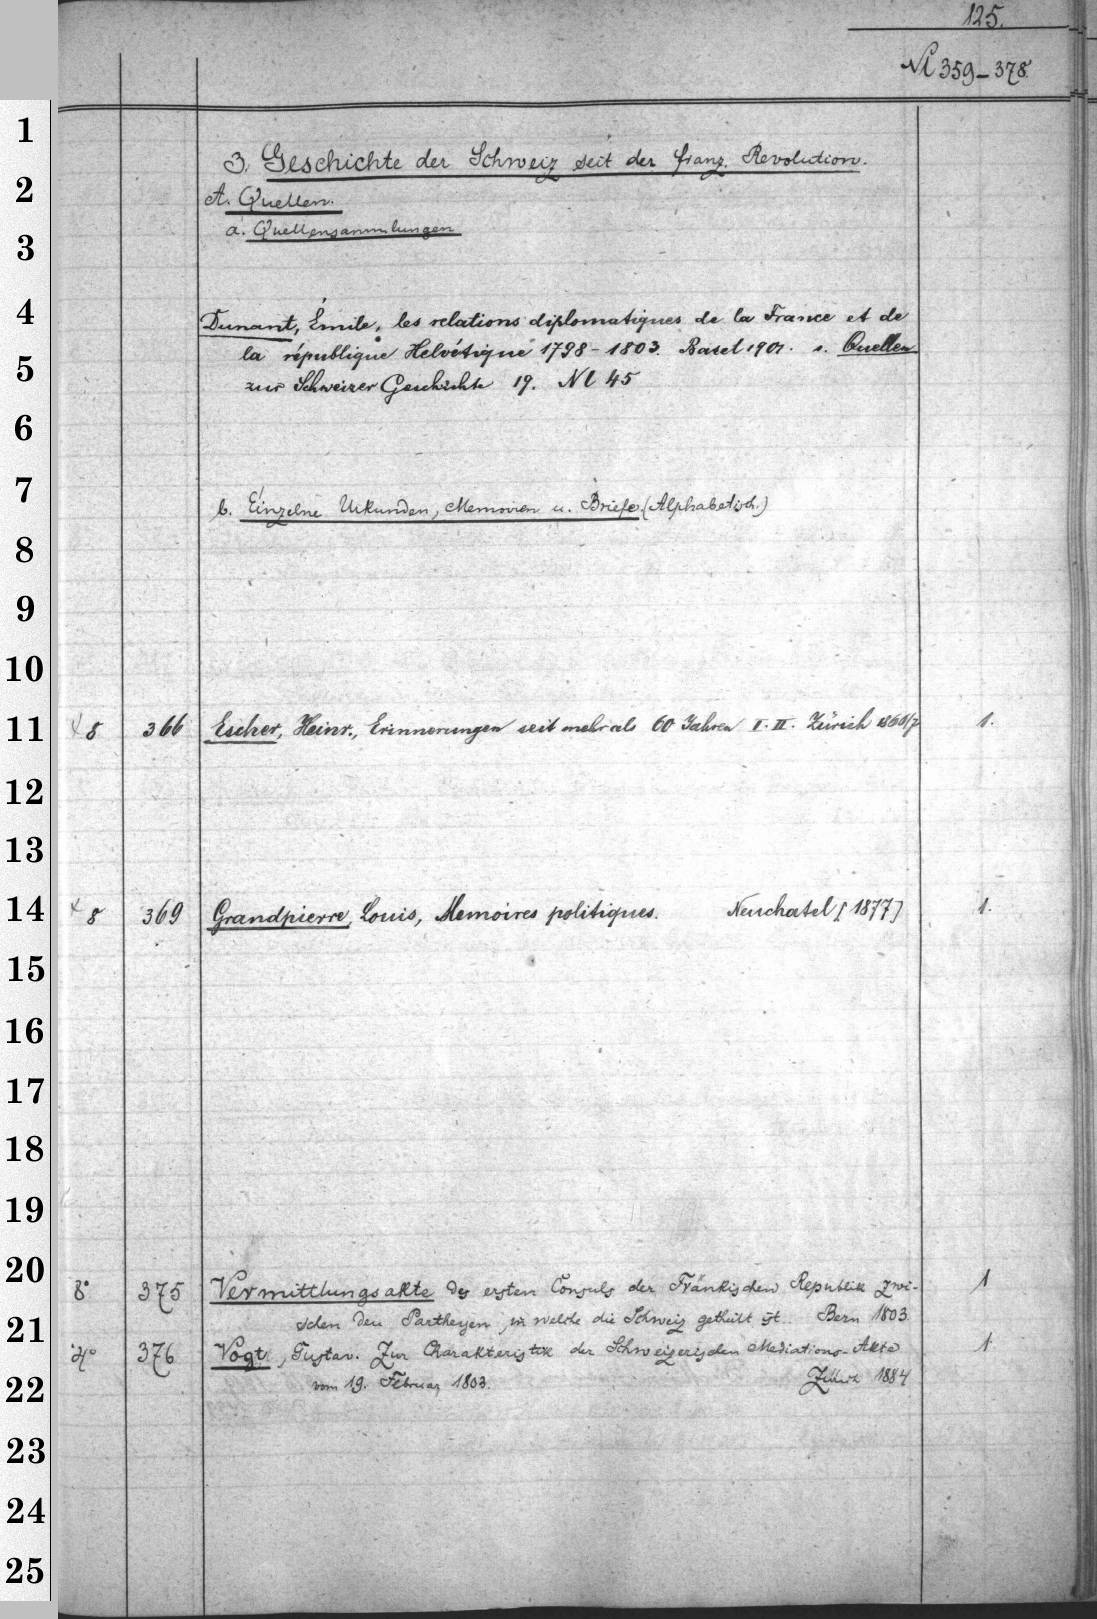 125.
Nl 359-378.
1
3. Geschichte der Schweiz seit der franz. Revolution.
2
A. Quellen.
3
a. Quellensammlungen
4
Dunant, Émile, les relations diplomatiques de la France et de
5
la république Helvétique 1798-1803. Basel 1901. s. Quellen
zur Schweizer Geschichte 19. Nl 45
6
7
b. Einzelne Urkunden, Memoiren u. Briefe. (Alphabetisch.)
8
9
10
11
x 8 366 Escher, Heinr., Erinnerungen seit mehr als 60 Jahren I. II. Zürich 1866/7 1.
12
13
14
x 8 369 Grandpierre, Louis, Memoires politiques. Neuchatel [1877] 1.
15
16
17
18
19
20
8° 375 Vermittlungsakte des ersten Consuls der Fränkischen Republik zwi- 1
21
schen den Partheyen, in welche die Schweiz getheilt ist. Bern 1803.
4° 376 Vogt, Gustav. Zur Charakteristik der Schweizerischen Mediations-Akte 1.
22
vom 19. Februar 1803. Zürich 1884
23
24
25